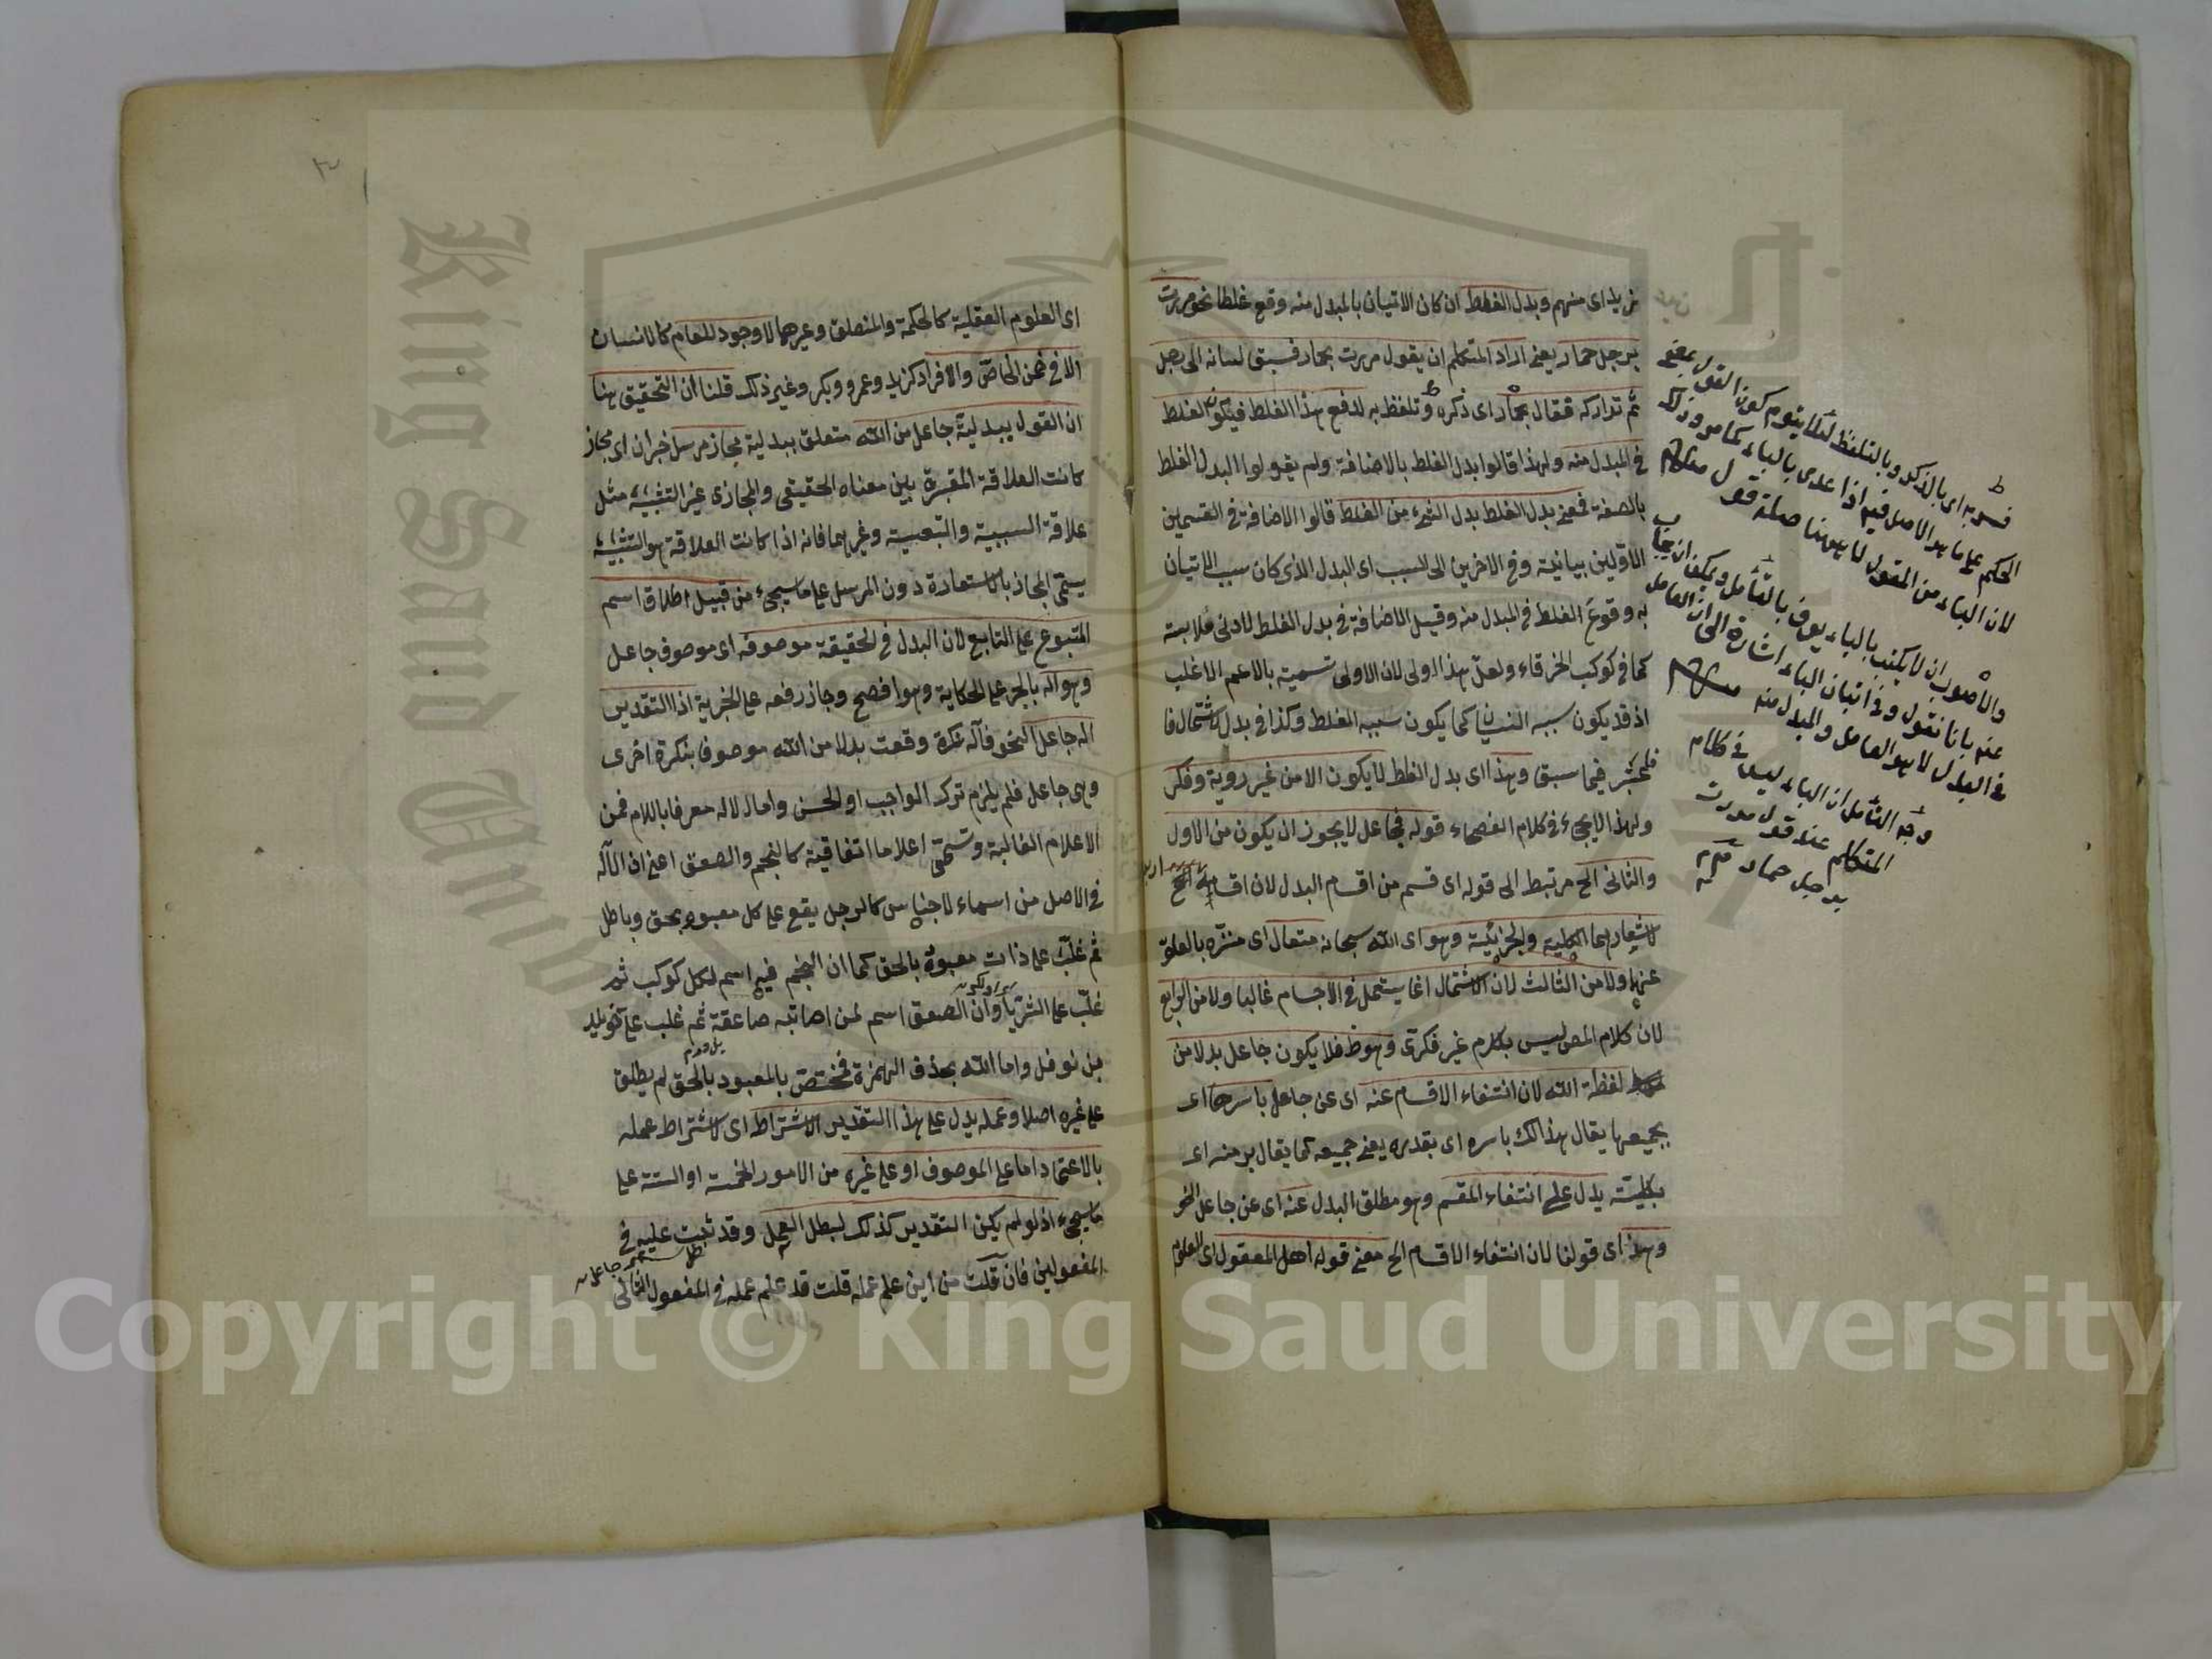 زيد اى منهم وبدل الغلط ان كان الاتيان بالمبدل منه وقع غلطا نحو مررت
برجل حمار يعنى اراد المتكلم ان يقول مررت بحمار فسبق لسانه الى رجل
ثم تداركه فقال بحمار اى ذكره وتلفظ به لدفع هذا الغلط فيكون الغلط
فى المبدل منه ولهذا قالوا بدل الغلط بالاضافة ولم يقولوا البدل الغلط
بالصفة فمعنى بدل الغلط بدل الشىء من الغلط قالوا الاضافة فى القسمين
الاولين بيانية وفى الاخرين الى السبب اى البدل الذى كان سبب الاتيان
به وقوع الغلط فى المبدل منه وقيل الاضافة فى بدل الغلط لادنى ملابسة
كما فى كوكب الخرقاء ولعل هذا اولى لان الاولى تسمية بالاعم الاغلب
اذ قد يكون سببه النسيان كما يكون سببه الغلط وكذا فى بدل الاشتمال فا
فيما سبق وهذا اى بدل الغلط لا يكون الا من غير روية وفكر
ولهذا لا يجىء فى كلام الفصحاء قوله فجاعل لا يجوز ان يكون من الاول
والثانى الخ مرتبط الى قوله اى قسم من اقسام البدل لان اقسامه الخ
لاشعارهما الكلية والجزئية وهو اى الله سبحانه متعال اى منزه بالعلو
عنهما ولا من الثالث لان الاشتمال انما يستعمل فى الاجسام غالبا ولا من الرابع
لان كلام المص ليس بكلام غير فكرى وهو ظ فلا يكون جاعل بدلا من
لفظة الله لان انتفاء الاقسام عنه اى عن جاعل باسرها اى
بجميعها يقال هذا لك باسره اى بقدره يعنى جميعه كما يقال برمته اى
بكليته يدل على انتفاء المقسم وهو مطلق البدل عنه اى عن جاعل النحو
وهذا اى قولنا لان انتفاء الاقسام الخ معنى قوله اهل المعقول اى العلوم
فسر به اى بالذكر وبالتلفظ لئلا يتوهم كون القول بمعنى
الحكم على ما هو الاصل فيه اذا عدى بالباء كما مر وذلك
لان الباء من المقول لا ههنا صلة قول
والاصوب ان لا يكتب بالباء يعرف بالتأمل ويمكن ان يجاب
عنه بانا نقول وفى اتيان الباء اشارة الى ان العامل
فى البدل لا هو العامل والمبدل منه
وجه التأمل ان الباء ليس فى كلام
المتكلم عند قول مررت
برجل حمار
اى العلوم العقلية كالحكمة والمنطق وغيرهما لا وجود للعام كالانسان
الا فى ضمن الخاص والافراد كزيد وعمرو وبكر وغير ذلك قلنا ان التحقيق هنا
ان القول ببدلية جاعل من الله متعلق ببدلية مجاز مرسل خبر ان اى مجاز
كانت العلاقة المعتبرة بين معناه الحقيقى والمجازى غير التشبيه مثل
علاقة السببية والتبعية وغيرهما فانه اذا كانت العلاقة هو التشبيه
يسمى المجاز بالاستعارة دون المرسل على ما سيجىء من قبيل اطلاق اسم
المتبوع على التابع لان البدل فى الحقيقة موصوفه اى موصوف جاعل
وهو اله بالجر على الحكاية وهو افصح وجاز رفعه على الخبرية اذا التقدير
اله جاعل النحو فاله نكرة وقعت بدلا من الله موصوفا بنكرة اخرى
وهى جاعل فلم يلزم ترك الواجب او الحسن واما الاله معرفا باللام فمن
الاعلام الغالبة وتسمى اعلاما اتفاقية كالنجم والصعق اعنى ان الاله
فى الاصل من اسماء الاجناس كالرجل يقع على كل معبود بحق وباطل
ثم غلب على ذات معبودة بالحق كما ان النجم فيه اسم لكل كوكب ثم
غلب على الثريا وان الصعق اسم لمن اصابته صاعقة ثم غلب على خويلد
بن نوفل واما الله بحذف الهمزة فمختص بالمعبود بالحق لم يطلق
على غيره اصلا وعمله يدل على هذا التقدير لاشتراط اى لاشتراط عمله
بالاعتماد اما على الموصوف او على غيره من الامور الخمسة او الستة على
ما سيجىء اذ لو لم يكن التقدير كذلك لبطل العمل وقد ثبت عليه فى
المفعولين فان قلت من اين علم عمله قلت قد علم عمله فى المفعول الثانى